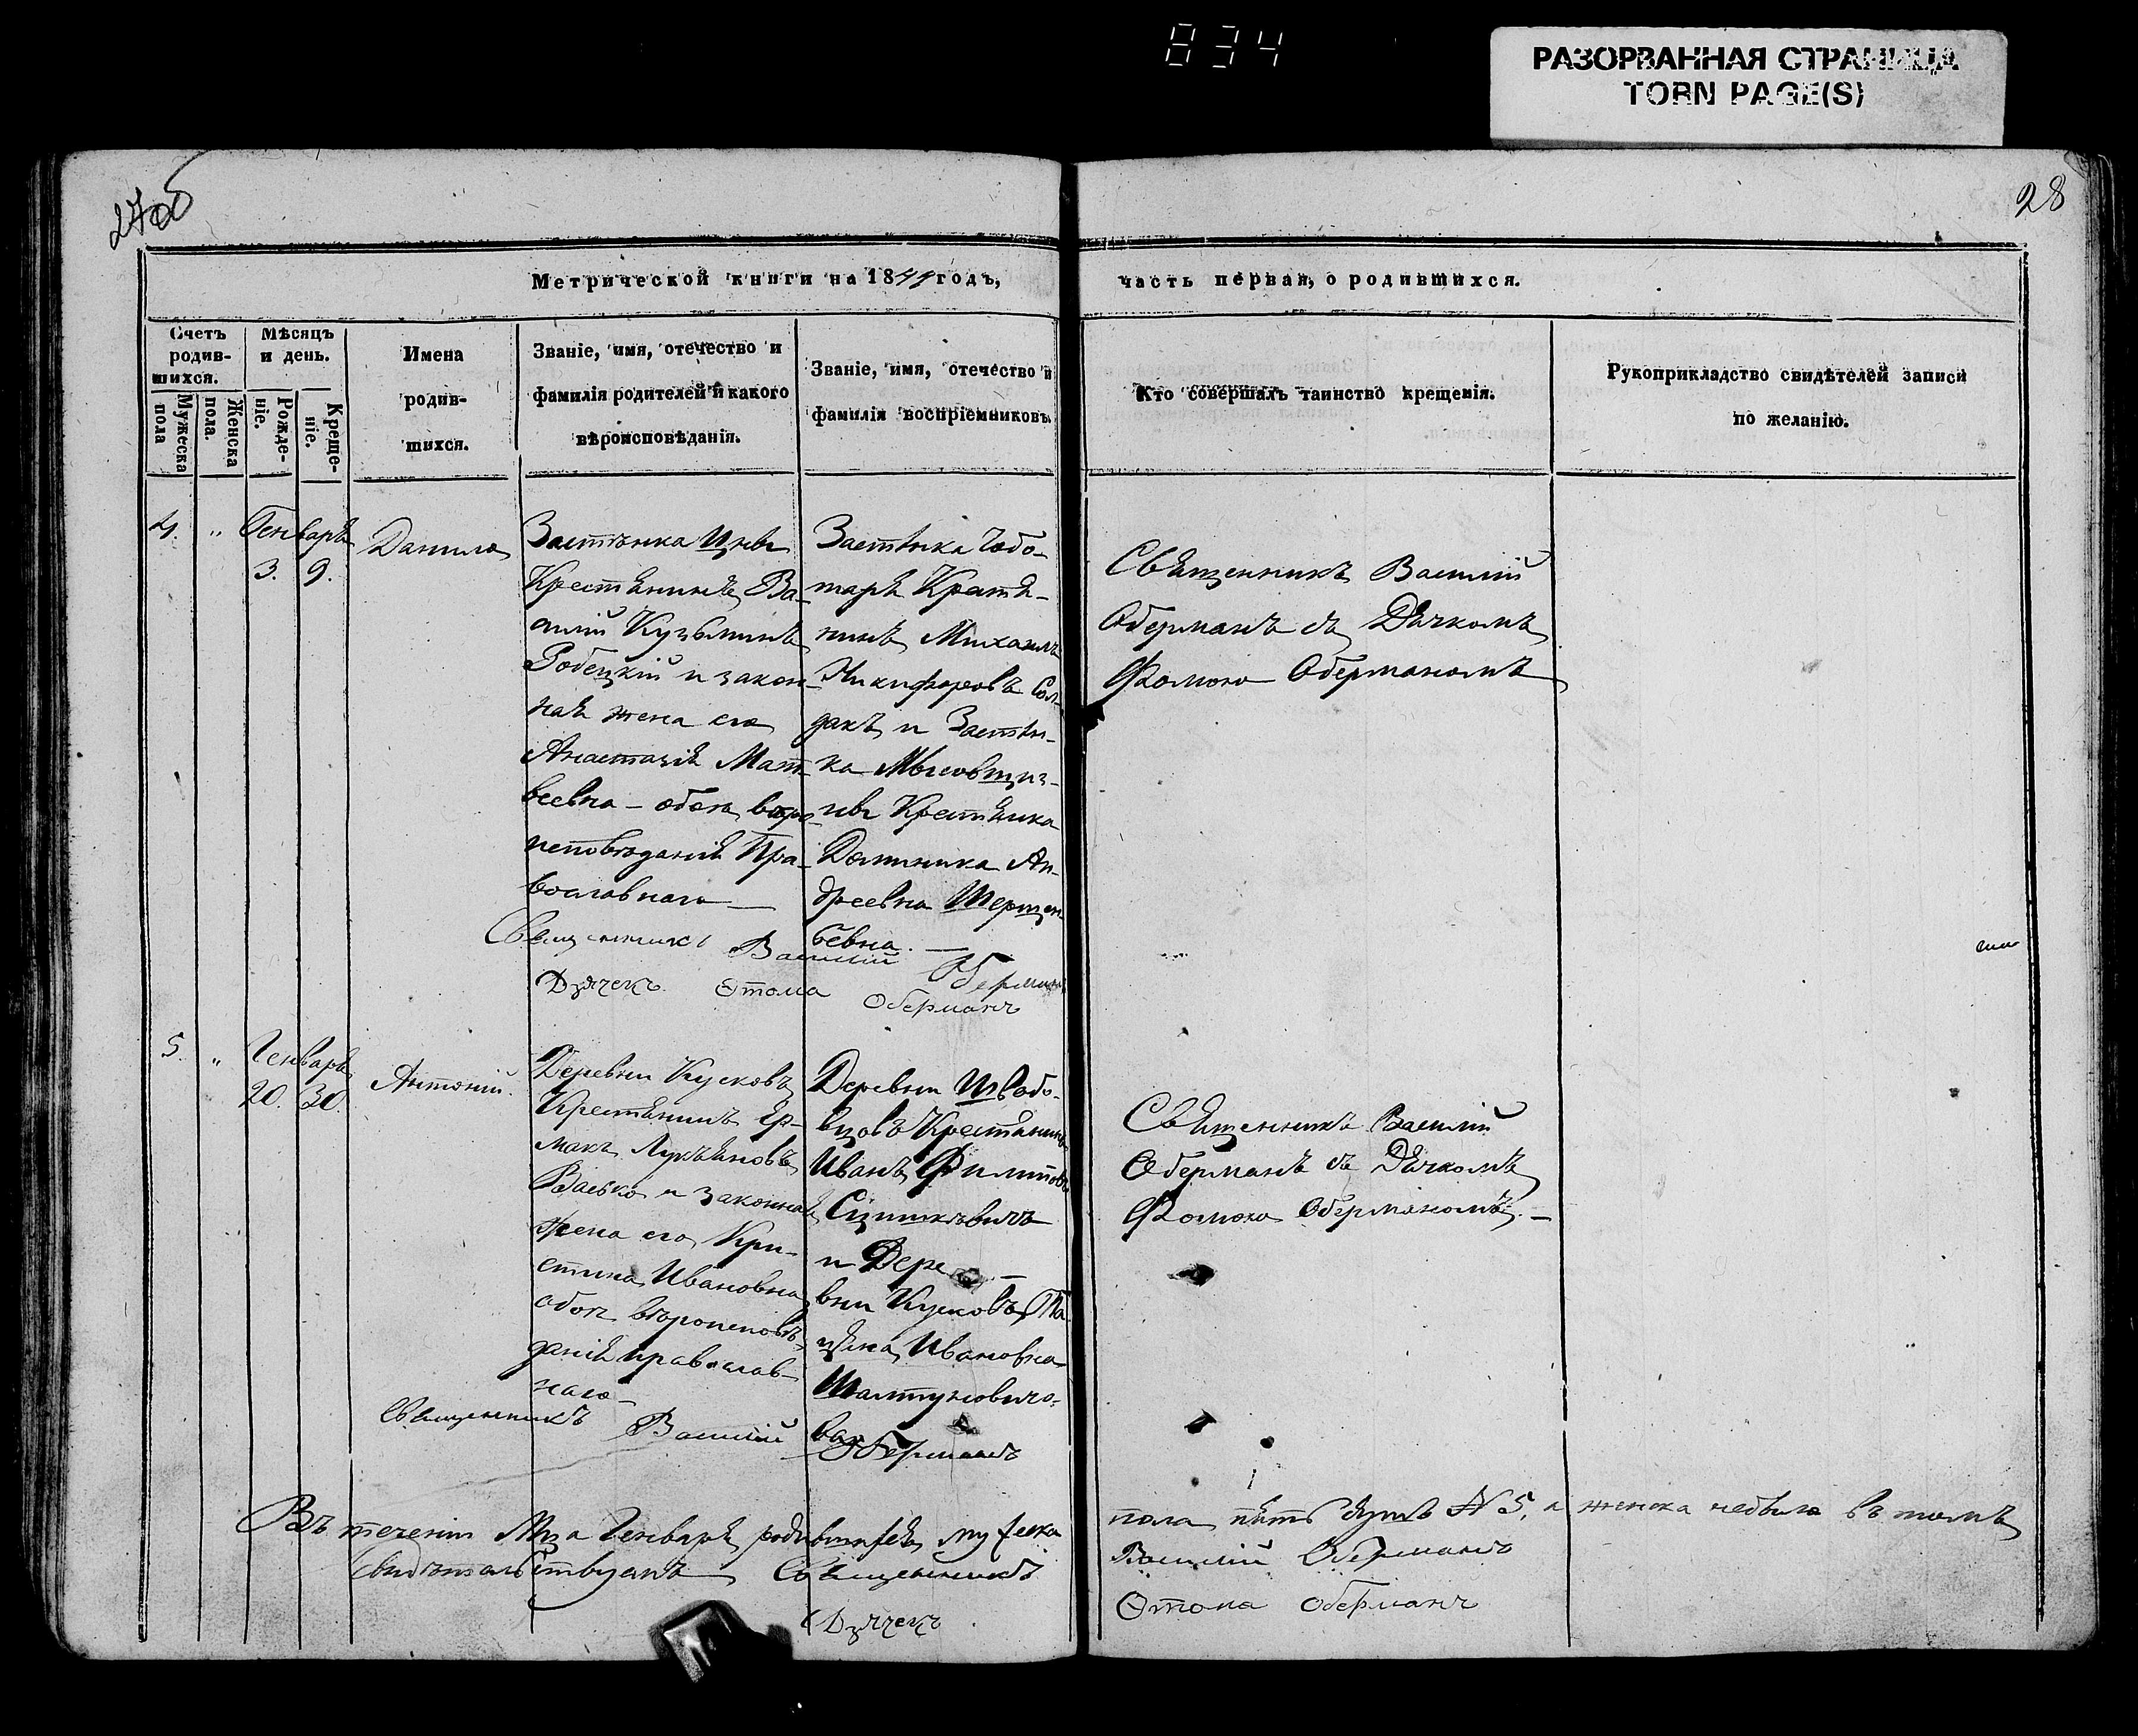 834
РАЗОРВАННАЯ СТРАНИЦА
TORN PAGE(S)
27об
28
Метрической книги на 184 годъ,
часть первая, о родившихся.
Счетъ родив-шихся.
Мужеска пола
Женска пола.
Мѣсяцъ и день.
Рожде-ніе.
Креще-ніе.
Имена родив-шихся.
Званіе, имя, отечество и фамилія родителей и какого вѣроисповѣданія.
Званіе, имя, отечество и фамилія воспріемниковъ.
Кто совершалъ таинство крещенія.
Рукоприкладство свидѣтелей записи по желанію.
4. „ Генваря
3. 9.
Данило
Застѣнка
Крестьянинъ Ва-
силій Кузьминъ
Робецкій и закон-
ная жена его
Анастазія Мат-
веевна – обоя веро
исповѣданія Пра-
вославнаго —
Застѣнка Чобо-
таря Крестья-
нинъ Михаилъ
Никифоровъ Сол-
дакъ и Застѣн-
ка
ны Крестьянка
Доминика Ан-
дреевна
бевна. —
Священникъ Василій
Оберманъ съ Дьячкомъ
Фомою Оберманомъ
Священникъ Василій Оберманъ
Дьячекъ Ѳтома Оберманъ
5. „ Генваря
20. 30.
Антоній.
Деревни Кусковъ
Крестьянинъ Ер-
макъ Лукьяновъ
Васько и законная
жена его Кри-
стина Ивановна
обоя вѣроисповѣ-
данія православ-
наго –
Деревни Швабо-
вцовъ Крестьянинъ
Иванъ Филиповъ
и Дере –
вни Кусковъ Та
цяна Ивановна
Шалтуновичо-
вая
Священникъ Василій
Оберманъ съ Дьячкомъ
Фомою Оберманомъ. –
Священникъ Василій Оберманъ
Въ теченіи Мца Генваря родившихся мужеска
пола пять душъ № 5, а женска небыло въ томъ
свидѣтельствуемъ Священникъ
Василій Оберманъ
Дьячекъ
Ѳтома Оберманъ